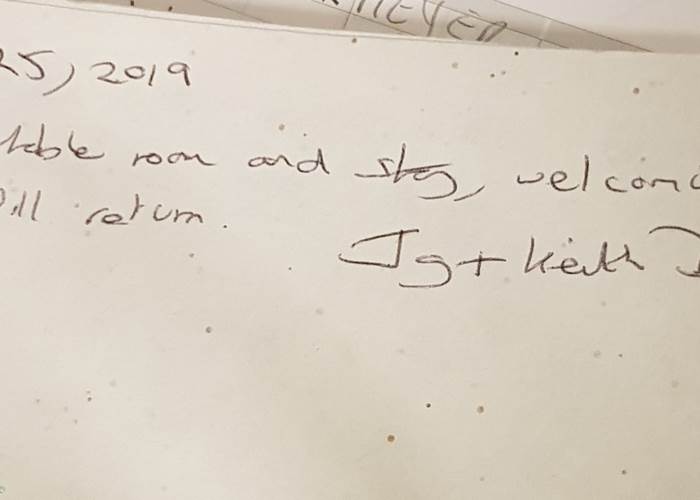 MEYER
25, 2019
table room and stay, welcom
ill return.
Jg + Keith